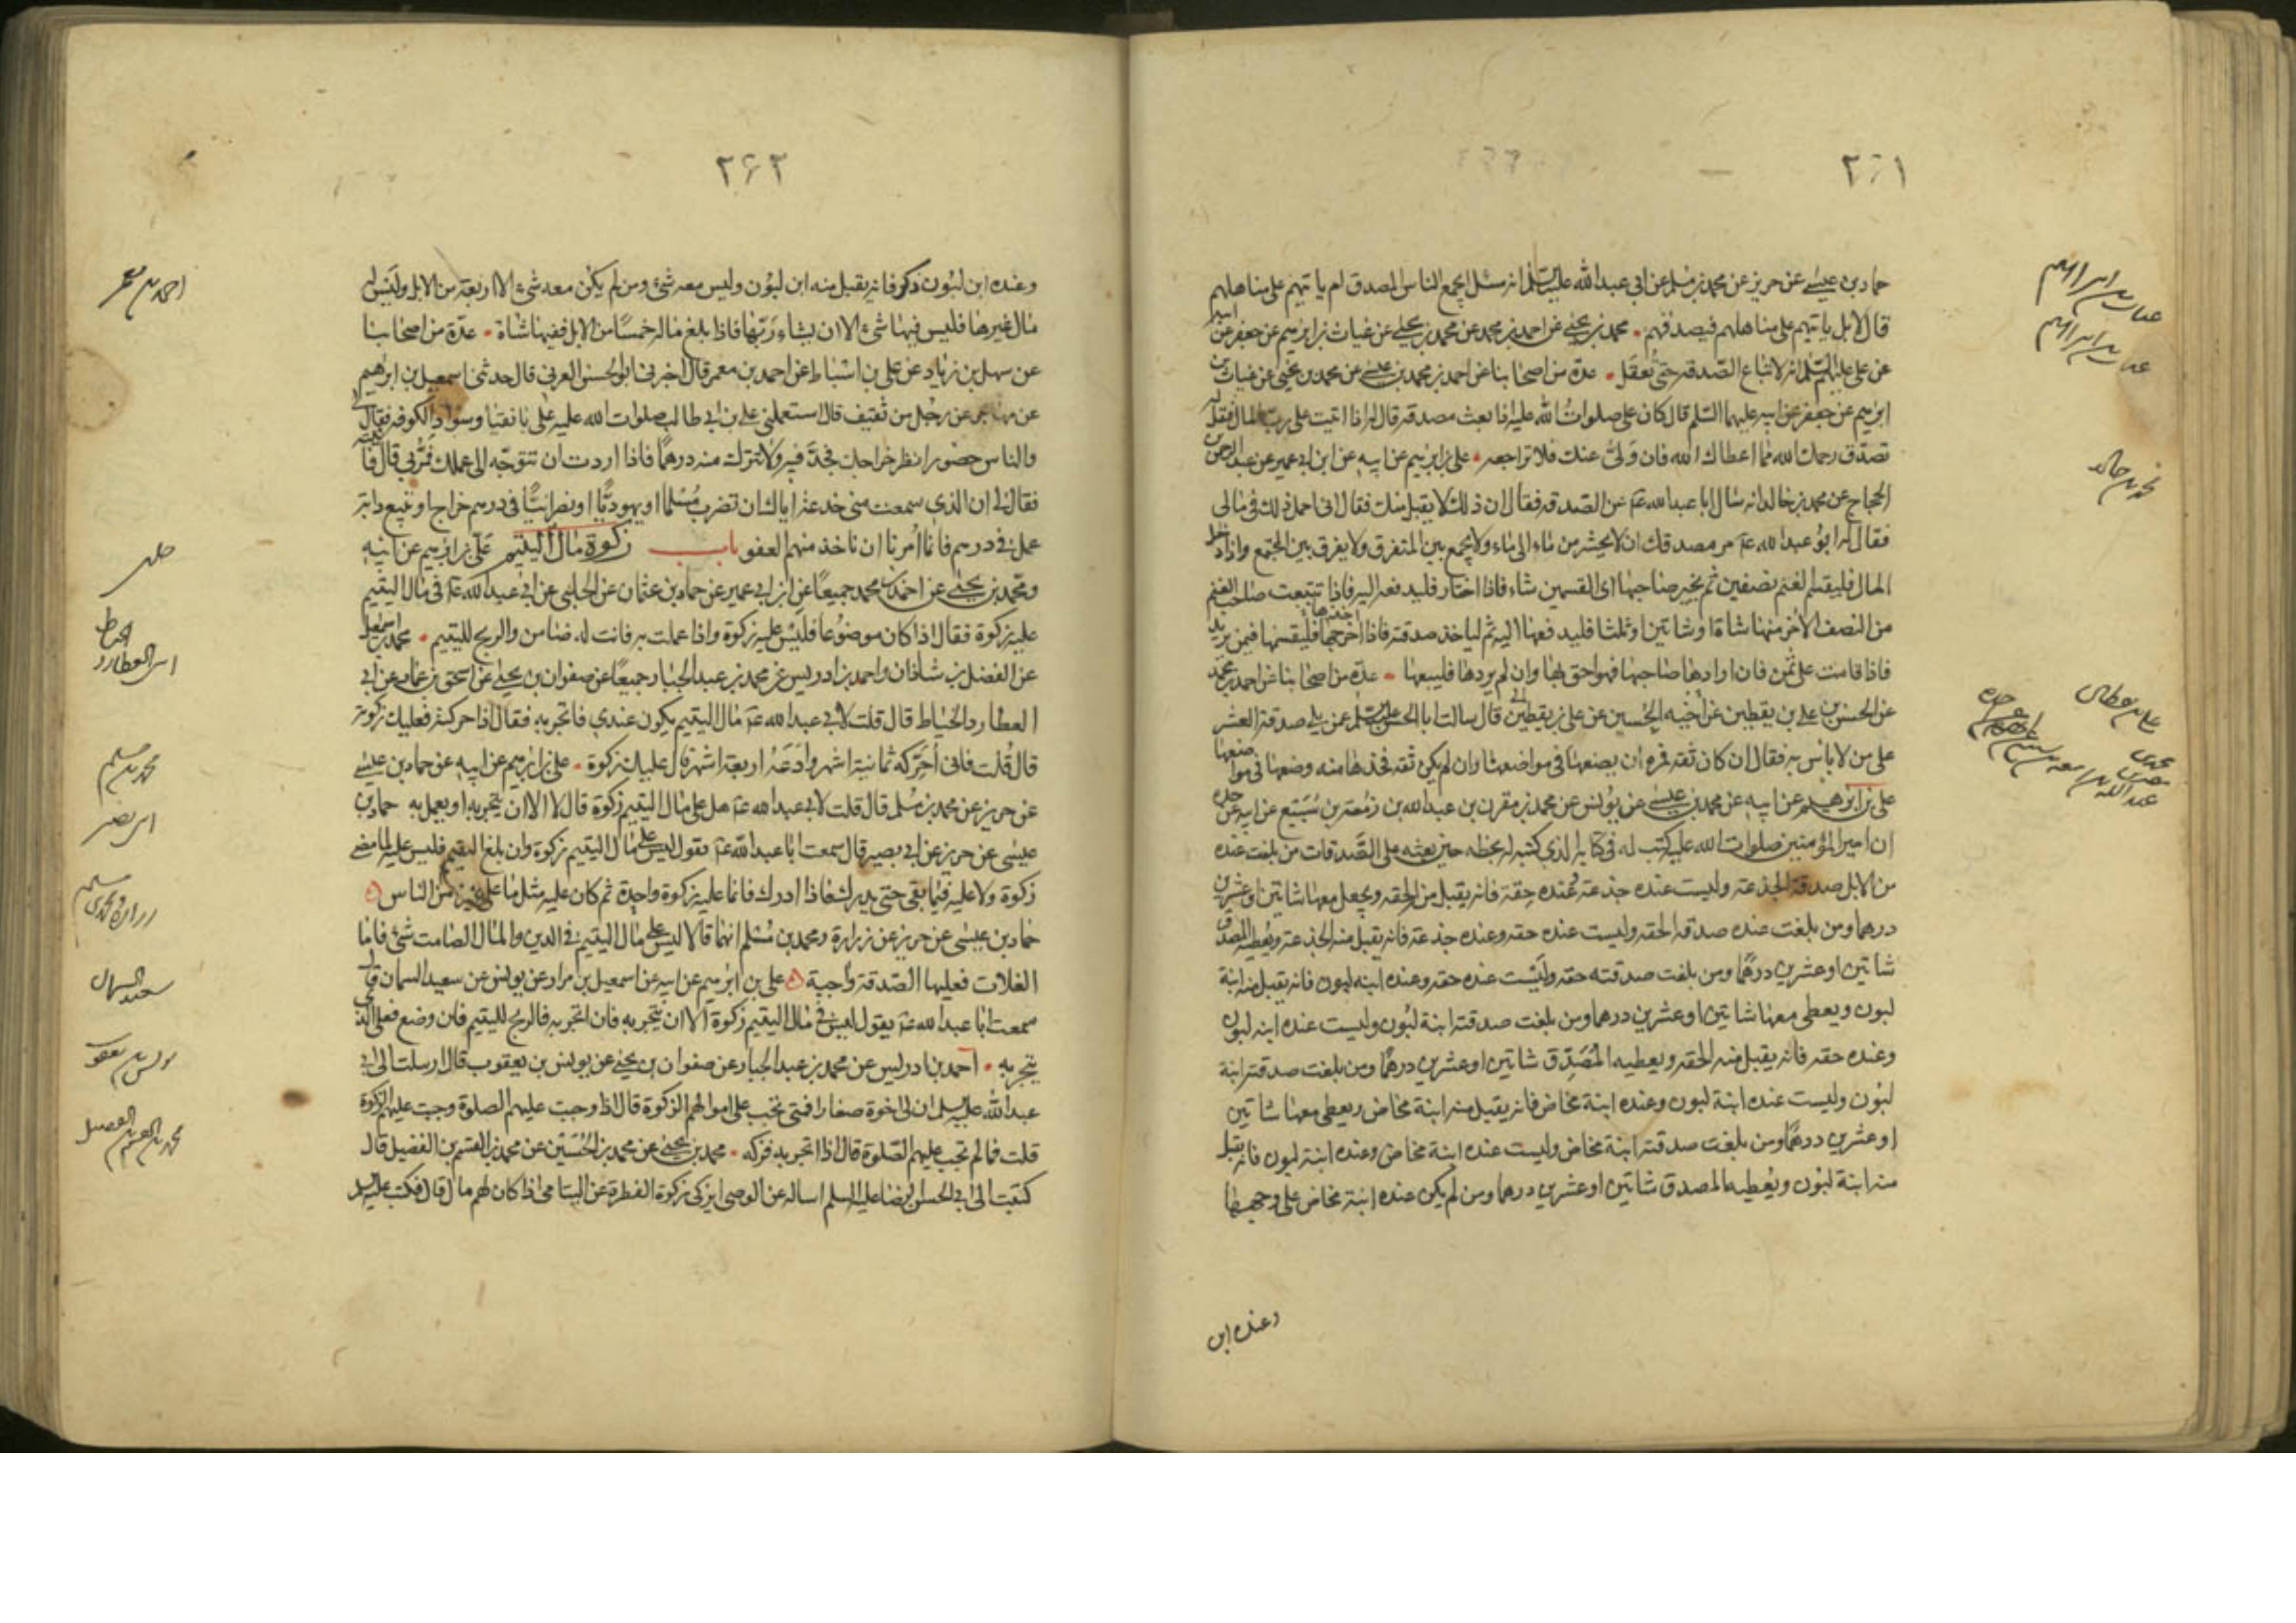 ٢٦١
حماد بن عيسى عن حريز عن محمد بن مسلم عن ابى عبد الله عليه السلم انه سئل ايجمع الناس المصدق ام ياتيهم على مناهلهم
قال لا بل ياتيهم على مناهلهم فيصدقهم محمد بن يحيى عن احمد بن محمد عن محمد بن يحيى عن غياث بن ابرهيم عن جعفر عن ابيه
عن على عليهم السلم انه لا تباع الصدقة حتى تعقل عدة من اصحابنا عن احمد بن محمد بن عيسى عن محمد بن يحيى عن غياث بن
ابرهيم عن جعفر عن ابيه عليهما السلم قال كان على صلوات الله عليه اذا بعث مصدقه قال له اذا اتيت على رب المال فقل له
تصدق رحمك الله مما اعطاك الله فان ولى عنك فلا تراجعه على بن ابرهيم عن ابيه عن ابن ابى عمير عن عبد الرحمن بن
الحجاج عن محمد بن خالد انه سال ابا عبد الله عن الصدقة فقال ان ذلك لا يقبل منك فقال انى احمل ذلك فى مالى
فقال له ابو عبد الله مر مصدقك ان لا يحشر من ماء الى ماء ولا يجمع بين المتفرق ولا يفرق بين المجتمع واذا دخل
المال فليقسم الغنم نصفين ثم يخير صاحبها اى القسمين شاء فاذا اختار فليدفعه اليه فاذا تتبعت صاحب الغنم
من النصف الاخر منها شاة او شاتين او ثلثا فليدفعها اليه ثم لياخذ صدقته فاذا اخرجها فليقسمها فيمن يريد
فاذا قامت على ثمن فان ارادها صاحبها فهو احق بها وان لم يردها فليبعها عدة من اصحابنا عن احمد بن محمد
عن الحسن بن على بن يقطين عن اخيه الحسين عن على بن يقطين قال سالت ابا الحسن عليه السلم عمن يلى صدقة العشر
على من لا باس به فقال ان كان ثقة فمره ان يضعها فى مواضعها وان لم يكن ثقة فخذها منه وضعها فى مواضعها
على بن ابرهيم عن ابيه عن محمد بن عيسى عن يونس عن محمد بن مقرن بن عبد الله بن زمعة بن سبيع عن ابيه عن جده
ان امير المؤمنين صلوات الله عليه كتب له فى كتابه الذى كتبه له بخطه حين بعثه على الصدقات من بلغت عنده
من الابل صدقة الجذعة وليست عنده جذعة وعنده حقة فانه يقبل منه الحقه ويجعل معها شاتين او عشرين
درهما ومن بلغت عنده صدقة الحقه وليست عنده حقه وعنده جذعة فانه يقبل منه الجذعة ويعطيه المصدق
شاتين او عشرين درهما ومن بلغت صدقته حقه وليست عنده حقه وعنده ابنه لبون فانه يقبل منه ابنة
لبون ويعطى معها شاتين او عشرين درهما ومن بلغت صدقته ابنة لبون وليست عنده ابنه لبون
وعنده حقه فانه يقبل منه الحقه ويعطيه المصدق شاتين او عشرين درهما ومن بلغت صدقته ابنة
لبون وليست عنده ابنة لبون وعنده ابنة مخاض فانه يقبل منه ابنة مخاض ويعطى معها شاتين
او عشرين درهما ومن بلغت صدقته ابنة مخاض وليست عنده ابنة مخاض وعنده ابنة لبون فانه يقبل
منه ابنة لبون ويعطيه المصدق شاتين او عشرين درهما ومن لم يكن عنده ابنة مخاض على وجهها
وعنده ابن
محمد بن خالد
على بن يقطين
٢٦٢
وعنده ابن لبون ذكر فانه يقبل منه ابن لبون وليس معه شئ ومن لم يكن معه شئ الا اربعة من الابل وليس له
مال غيرها فليس فيها شئ الا ان يشاء ربها فاذا بلغ ماله خمسا من الابل ففيها شاة عدة من اصحابنا
عن سهل بن زياد عن على بن اسباط عن احمد بن معمر قال اخبرنى ابو الحسن العرنى قال حدثنى اسمعيل بن ابرهيم
عن مهاجر عن رجل من ثقيف قال استعملنى على بن ابى طالب صلوات الله عليه على بانقيا وسواد الكوفه فقال لى
والناس حضور انظر خراجك فجد فيه ولا تترك منه درهما فاذا اردت ان تتوجه الى عملك فمر بى قال فاتيته
فقال لى ان الذى سمعت منى خدعة اياك ان تضرب مسلما او يهوديا او نصرانيا فى درهم خراج او تبيع دابة
عمل فى درهم فانما امرنا ان ناخذ منهم العفو باب زكوة مال اليتيم على بن ابرهيم عن ابيه
ومحمد بن يحيى عن احمد بن محمد جميعا عن ابن ابى عمير عن حماد بن عثمان عن الحلبى عن ابى عبد الله فى مال اليتيم
عليه زكوة فقال اذا كان موضوعا فليس عليه زكوة واذا عملت به فانت له ضامن والربح لليتيم محمد بن اسمعيل
عن الفضل بن شاذان واحمد بن ادريس عن محمد بن عبد الجبار جميعا عن صفوان بن يحيى عن اسحق بن عمار عن ابى
العطارد الخياط قال قلت لابى عبد الله مال اليتيم يكون عندى فاتجر به فقال اذا حركته فعليك زكوته
قال قلت فانى احركه ثمانية اشهر وادعه اربعة اشهر قال عليك زكوة على بن ابرهيم عن ابيه عن حماد بن عيسى
عن حريز عن محمد بن مسلم قال قلت لابى عبد الله هل على مال اليتيم زكوة قال لا الا ان يتجر به او يعمل به حماد بن
عيسى عن حريز عن ابى بصير قال سمعت ابا عبد الله يقول ليس على مال اليتيم زكوة وان بلغ اليتيم فليس عليه لما مضى
زكوة ولا عليه فيما بقى حتى يدرك فاذا ادرك فانما عليه زكوة واحدة ثم كان عليه مثل ما على غيره من الناس
حماد بن عيسى عن حريز عن زرارة ومحمد بن مسلم انهما قالا ليس على مال اليتيم فى الدين والمال الصامت شئ فاما
الغلات فعليها الصدقة واجبة على بن ابرهيم عن ابيه عن اسمعيل بن مرار عن يونس عن سعيد السمان قال
سمعت ابا عبد الله يقول ليس فى مال اليتيم زكوة الا ان يتجر به فان اتجر به فالربح لليتيم فان وضع فعلى الذى
يتجر به احمد بن ادريس عن محمد بن عبد الجبار عن صفوان بن يحيى عن يونس بن يعقوب قال ارسلت الى ابى
عبد الله عليه السلم ان لى اخوة صغارا فمتى تجب على اموالهم الزكوة قال اذا وجبت عليهم الصلوة وجبت عليهم الزكوة
قلت فما لم تجب عليهم الصلوة قال اذا اتجر به فزكه محمد بن يحيى عن محمد بن الحسين عن محمد بن القسم بن الفضيل قال
كتبت الى ابى الحسن الرضا عليه السلم اساله عن الوصى ايزكى زكوة الفطرة عن اليتامى اذا كان لهم مال قال فكتب عليه السلم
احمد بن معمر
حلبى
محمد بن مسلم
ابى بصير
سعيد السمان
يونس بن يعقوب
محمد بن القسم بن الفضيل